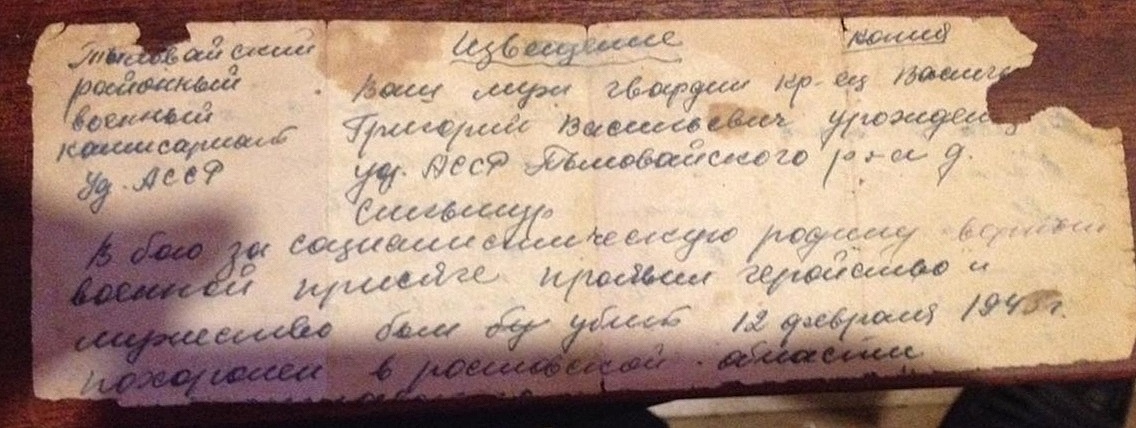 Извещение
копия
Тыловайский
районный
военный
комисариат
Уд. АССР
Ваш муж гвардии кр-ец
Григорий Васильевич урожденец
уд. АССР Тыловайского р-а д.
В бою за социалистическую родину верный
военной присяге проявил геройство и
мужество был бу убит 12 февраля 1943 г.
похоронен в ростовской области